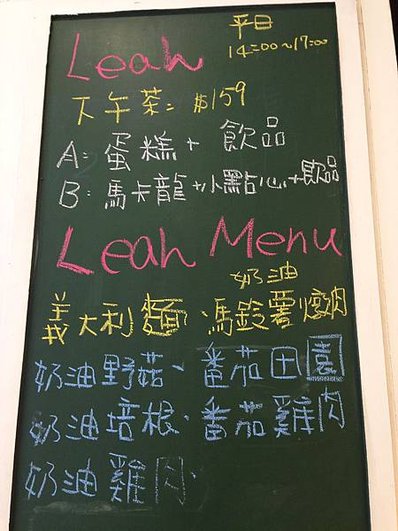 Leah
平日
14:00~17:00
下午茶: $159
A: 蛋糕+ 飲品
B: 馬卡龍+小點心+飲品
Leah Menu
奶油
義大利麵·馬鈴薯燉肉
奶油野菇·番茄田園
奶油培根·番茄雞肉
奶油雞肉